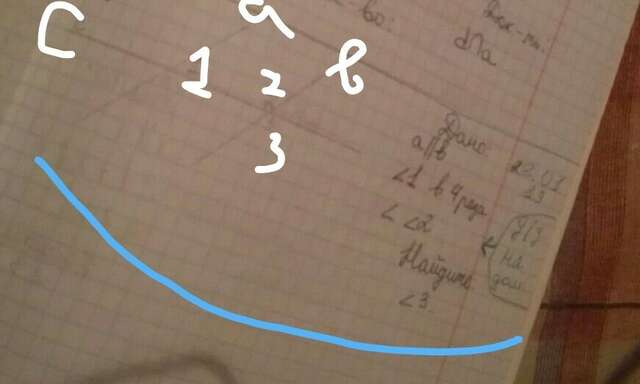 C
a
1 2 в
3
к-во:
Док-ть:
d∩a
Дано:
a||b
<1 в 4 раза
< <2
Найдите
<3
22.01
23
Д/З
на
дом